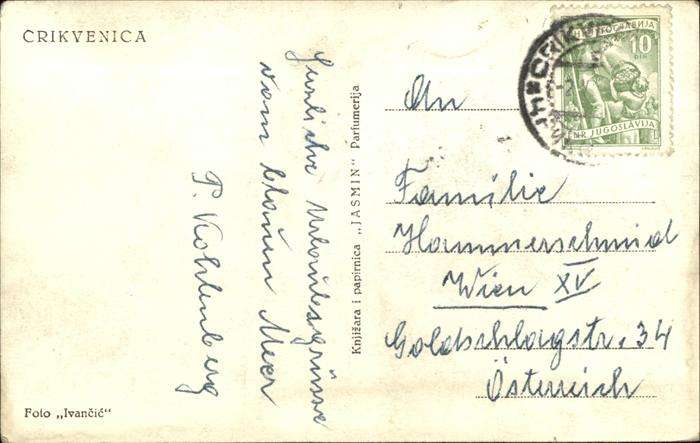 CRIKVENICA
Herzliche Urlaubsgrüsse
vom blauen Meer
P. Kohlenberg
Knjižara i papirnica „JASMIN" Parfumerija
Foto „Ivančić"
10
DIN
FNR JUGOSLAVIJA
CRIKV
An
Familie
Hammerschmid
Wien XV
Goldschlagstr. 34
Österreich